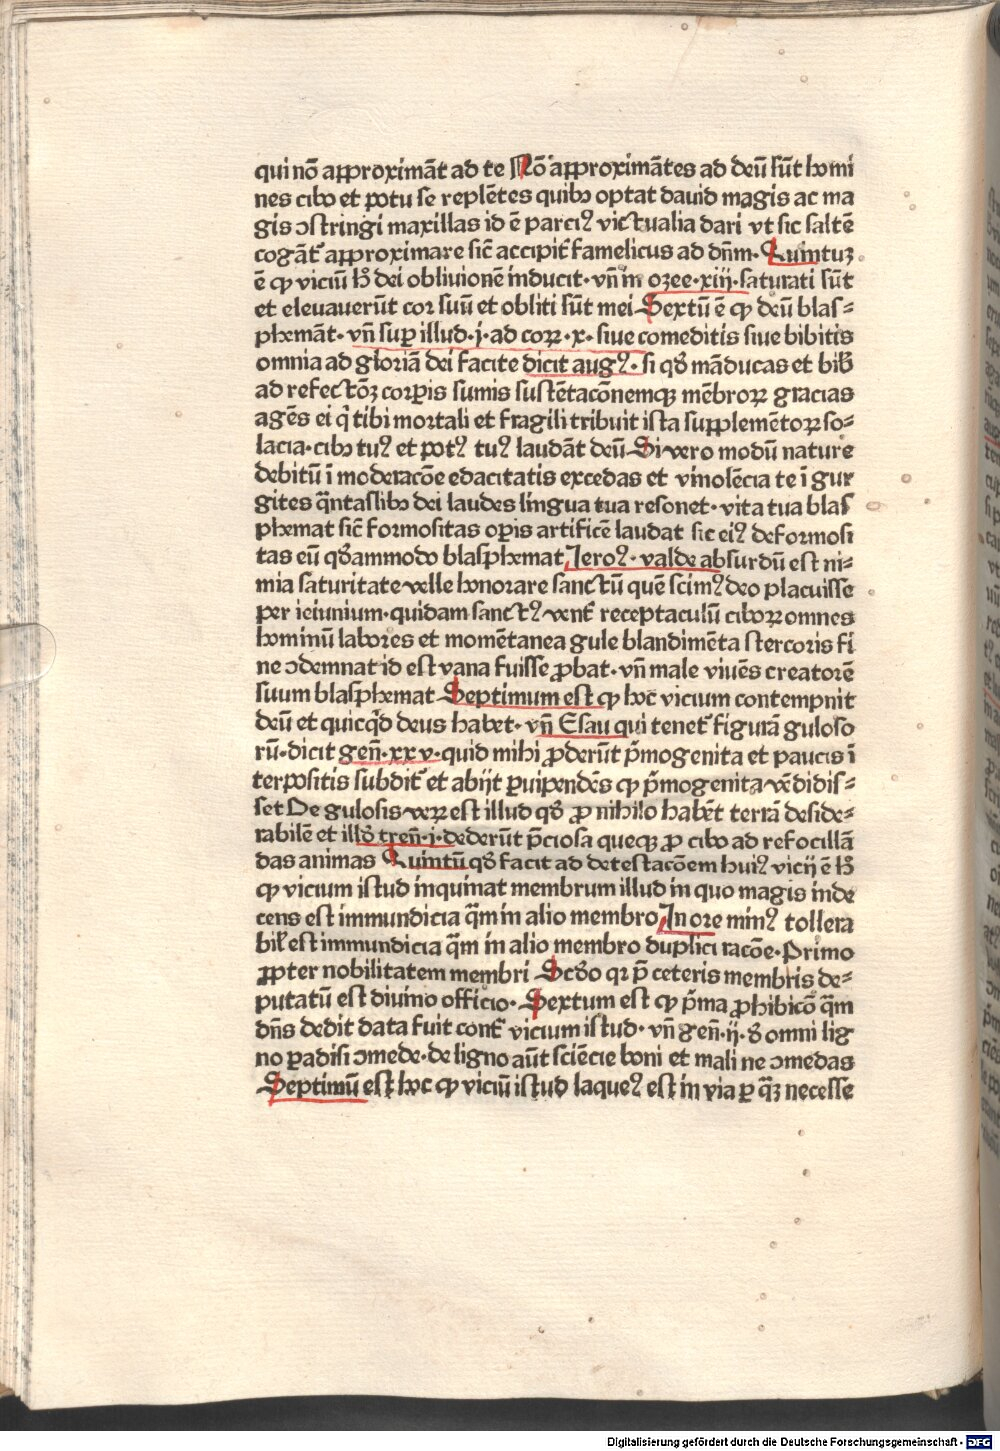 qui nō approximāt ad te Nō approximātes ad deū sūt homi
nes cibo et potu se replētes quibꝫ optat dauid magis ac ma
gis ↄstringi maxillas id ē parciꝰ victualia dari vt sic saltē
cogāt᷑ approximare sic̄ accipit᷑ famelicus ad dn̄m· Quintuꝫ
ē ꝙ viciū hꝰ dei obliuionē inducit· vn̄ in ozee·xiij·saturati sūt
et eleuauerūt cor suū et obliti sūt mei Sextū ē ꝙ deū blas⸗
phemāt· vn̄ suꝑ illud·j·ad corꝝ·x· siue comeditis siue bibitis
omnia ad gloriā dei facite dicit augꝰ· si qd̄ māducas et bib̄
ad refectōꝫ corꝑis sumis sustētacōnemqꝫ mēbroꝝ gracias
agēs ei q̄ tibi mortali et fragili tribuit ista supplemētoꝝ so⸗
lacia·cibꝫ tuꝰ et potꝰ tuꝰ laudāt deū Si vero modū nature
debitū ī moderacōe edacitatis excedas et vinolēcia te ī gur
gites q̄ntaslibꝫ dei laudes lingua tua resonet· vita tua blas
phemat sic̄ formositas oꝑis artificē laudat sic eiꝰ deformosi
tas eū qd̄ammodo blasphemat Jeroꝰ· valde absurdū est ni⸗
mia saturitate velle honorare sanctū quē scimꝰ deo placuisse
per ieiunium·quidam sanctꝰ vent᷑ receptaculū ciboꝝ omnes
hominū labores et momētanea gule blandimēta stercoris fi
ne ↄdemnat id est vana fuisse ꝓbat· vn̄ male viuēs creatorē
suum blasphemat Septimum est ꝙ hoc vicium contempnit
deū et quicq̇d deus habet· vn̄ Esau qui tenet᷑ figurā guloso
rū·dicit gen̄·xxv·quid mihi ꝓderūt p̄mogenita et paucis ī
terpositis subdit᷑ et abijt ꝑuipendēs ꝙ p̄mogenita vēdidis⸗
set De gulosis veꝝ est illud qd̄ ꝓ nihilo habēt terrā deside⸗
rabilē et illd̄ tren̄·j·dederūt p̄ciosa queqꝫ ꝓ cibo ad refocillā
das animas Quintū qd̄ facit ad detestacōem huiꝰ vicij ē hꝰ
ꝙ vicium istud inquinat membrum illud in quo magis inde
cens est immundicia q̄m in alio membro In ore minꝰ tollera
bil᷑ est immundicia q̄m in alio membro duplici racōe·Primo
ꝓpter nobilitatem membri Scd̄o qꝛ p̄ ceteris membris de⸗
putatū est diuino officio· Sextum est ꝙ p̄ma ꝓhibicō q̄m
dn̄s dedit data fuit cont᷑ vicium istud· vn̄ gen̄·ij·d̄ omni lig
no ꝑadisi ↄmede·de ligno aūt sciēcie boni et mali ne ↄmedas
Septimū est hoc ꝙ viciū istud laqueꝰ est in via ꝑ q̄ꝫ necesse
Digitalisierung gefördert durch die Deutsche Forschungsgemeinschaft - DFG